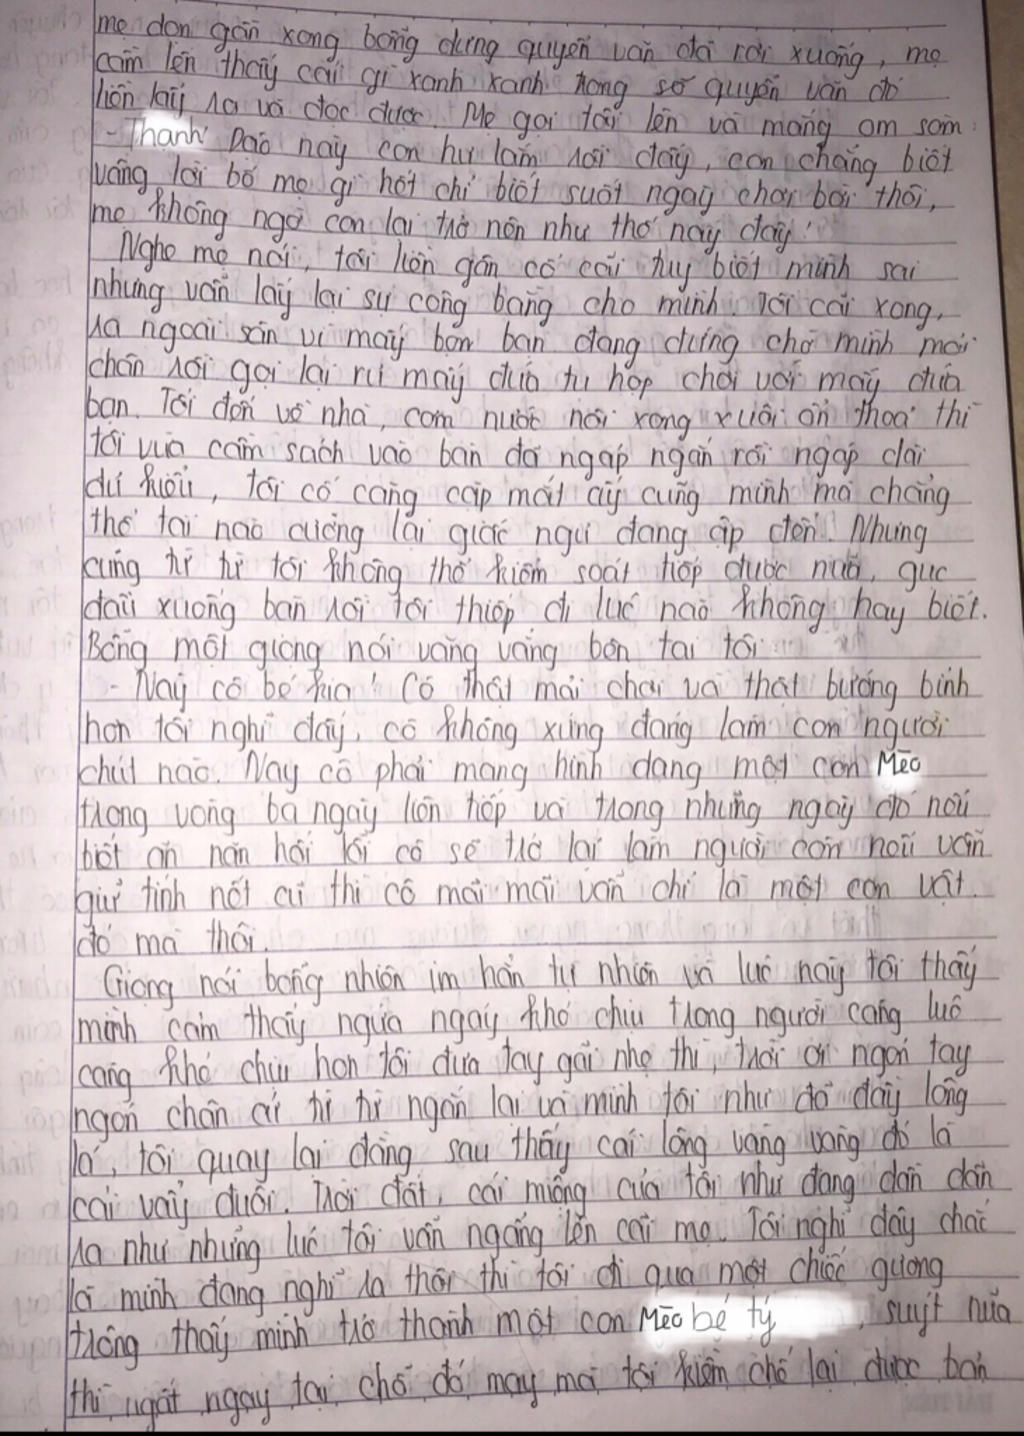 mẹ dọn gần xong bỗng dưng quyển văn đã rơi xuống, mẹ
cầm lên thấy cái gì xanh xanh trong số quyển văn đó
liền lấy ra và đọc được. Mẹ gọi tôi lên và mắng om sòm:
- Thanh! Dạo này con hư lắm rồi đấy, con chẳng biết
vâng lời bố mẹ gì hết chỉ biết suốt ngày chơi bời thôi,
mẹ không ngờ con lại trở nên như thế này đấy!
Nghe mẹ nói, tôi liền gân cổ cãi tuy biết mình sai
nhưng vẫn lấy lại sự công bằng cho mình. Tôi cãi xong,
ra ngoài sân vì mấy bọn bạn đang đứng chờ mình mỏi
chân rồi gọi lại rủ mấy đứa tụ họp chơi với mấy đứa
bạn. Tối đến về nhà, cơm nước nôi xong xuôi ổn thỏa thì
tôi vừa cầm sách vào bàn đã ngáp ngắn rồi ngáp dài
đủ kiểu, tôi cố căng cặp mắt ấy cùng mình mà chẳng
thể tài nào cưỡng lại giấc ngủ đang ập đến. Nhưng
cứng từ từ tôi không thể kiểm soát tiếp được nữa, gục
đầu xuống bàn rồi tôi thiếp đi lúc nào không hay biết.
Bỗng một giọng nói văng vẳng bên tai tôi
- Này cô bé kia! Cô thật mải chơi và thật bướng bỉnh
hơn tôi nghĩ đấy, cô không xứng đáng làm con người
chút nào. Nay cô phải mang hình dạng một con Mèo
trong vòng ba ngày liên tiếp và trong những ngày đó nếu
biết ăn năn hối lỗi cô sẽ trở lại làm người còn nếu vẫn
giữ tính nết cũ thì cô mãi mãi vẫn chỉ là một con vật
đó mà thôi.
Giọng nói bỗng nhiên im hẳn tự nhiên và lúc này tôi thấy
mình cảm thấy ngứa ngáy khó chịu trong người càng lúc
càng khó chịu hơn tôi đưa tay gãi nhẹ thì, trời ơi ngón tay
ngón chân cứ từ từ ngắn lại và mình tôi như đó đầy lông
lá, tôi quay lại đằng sau thấy cái lông vàng vàng đó là
cái vẫy đuôi. Trời đất, cái miệng của tôi như đang dần dần
ra như những lúc tôi vẫn ngẩng lên cãi mẹ. Tôi nghĩ đây chắc
là mình đang nghĩ ra thôi thì tôi đi qua một chiếc gương
trông thấy mình trở thành một con Mèo bé tý, suýt nữa
thì ngất ngay tại chỗ đó, may mà tôi kiềm chế lại được bản